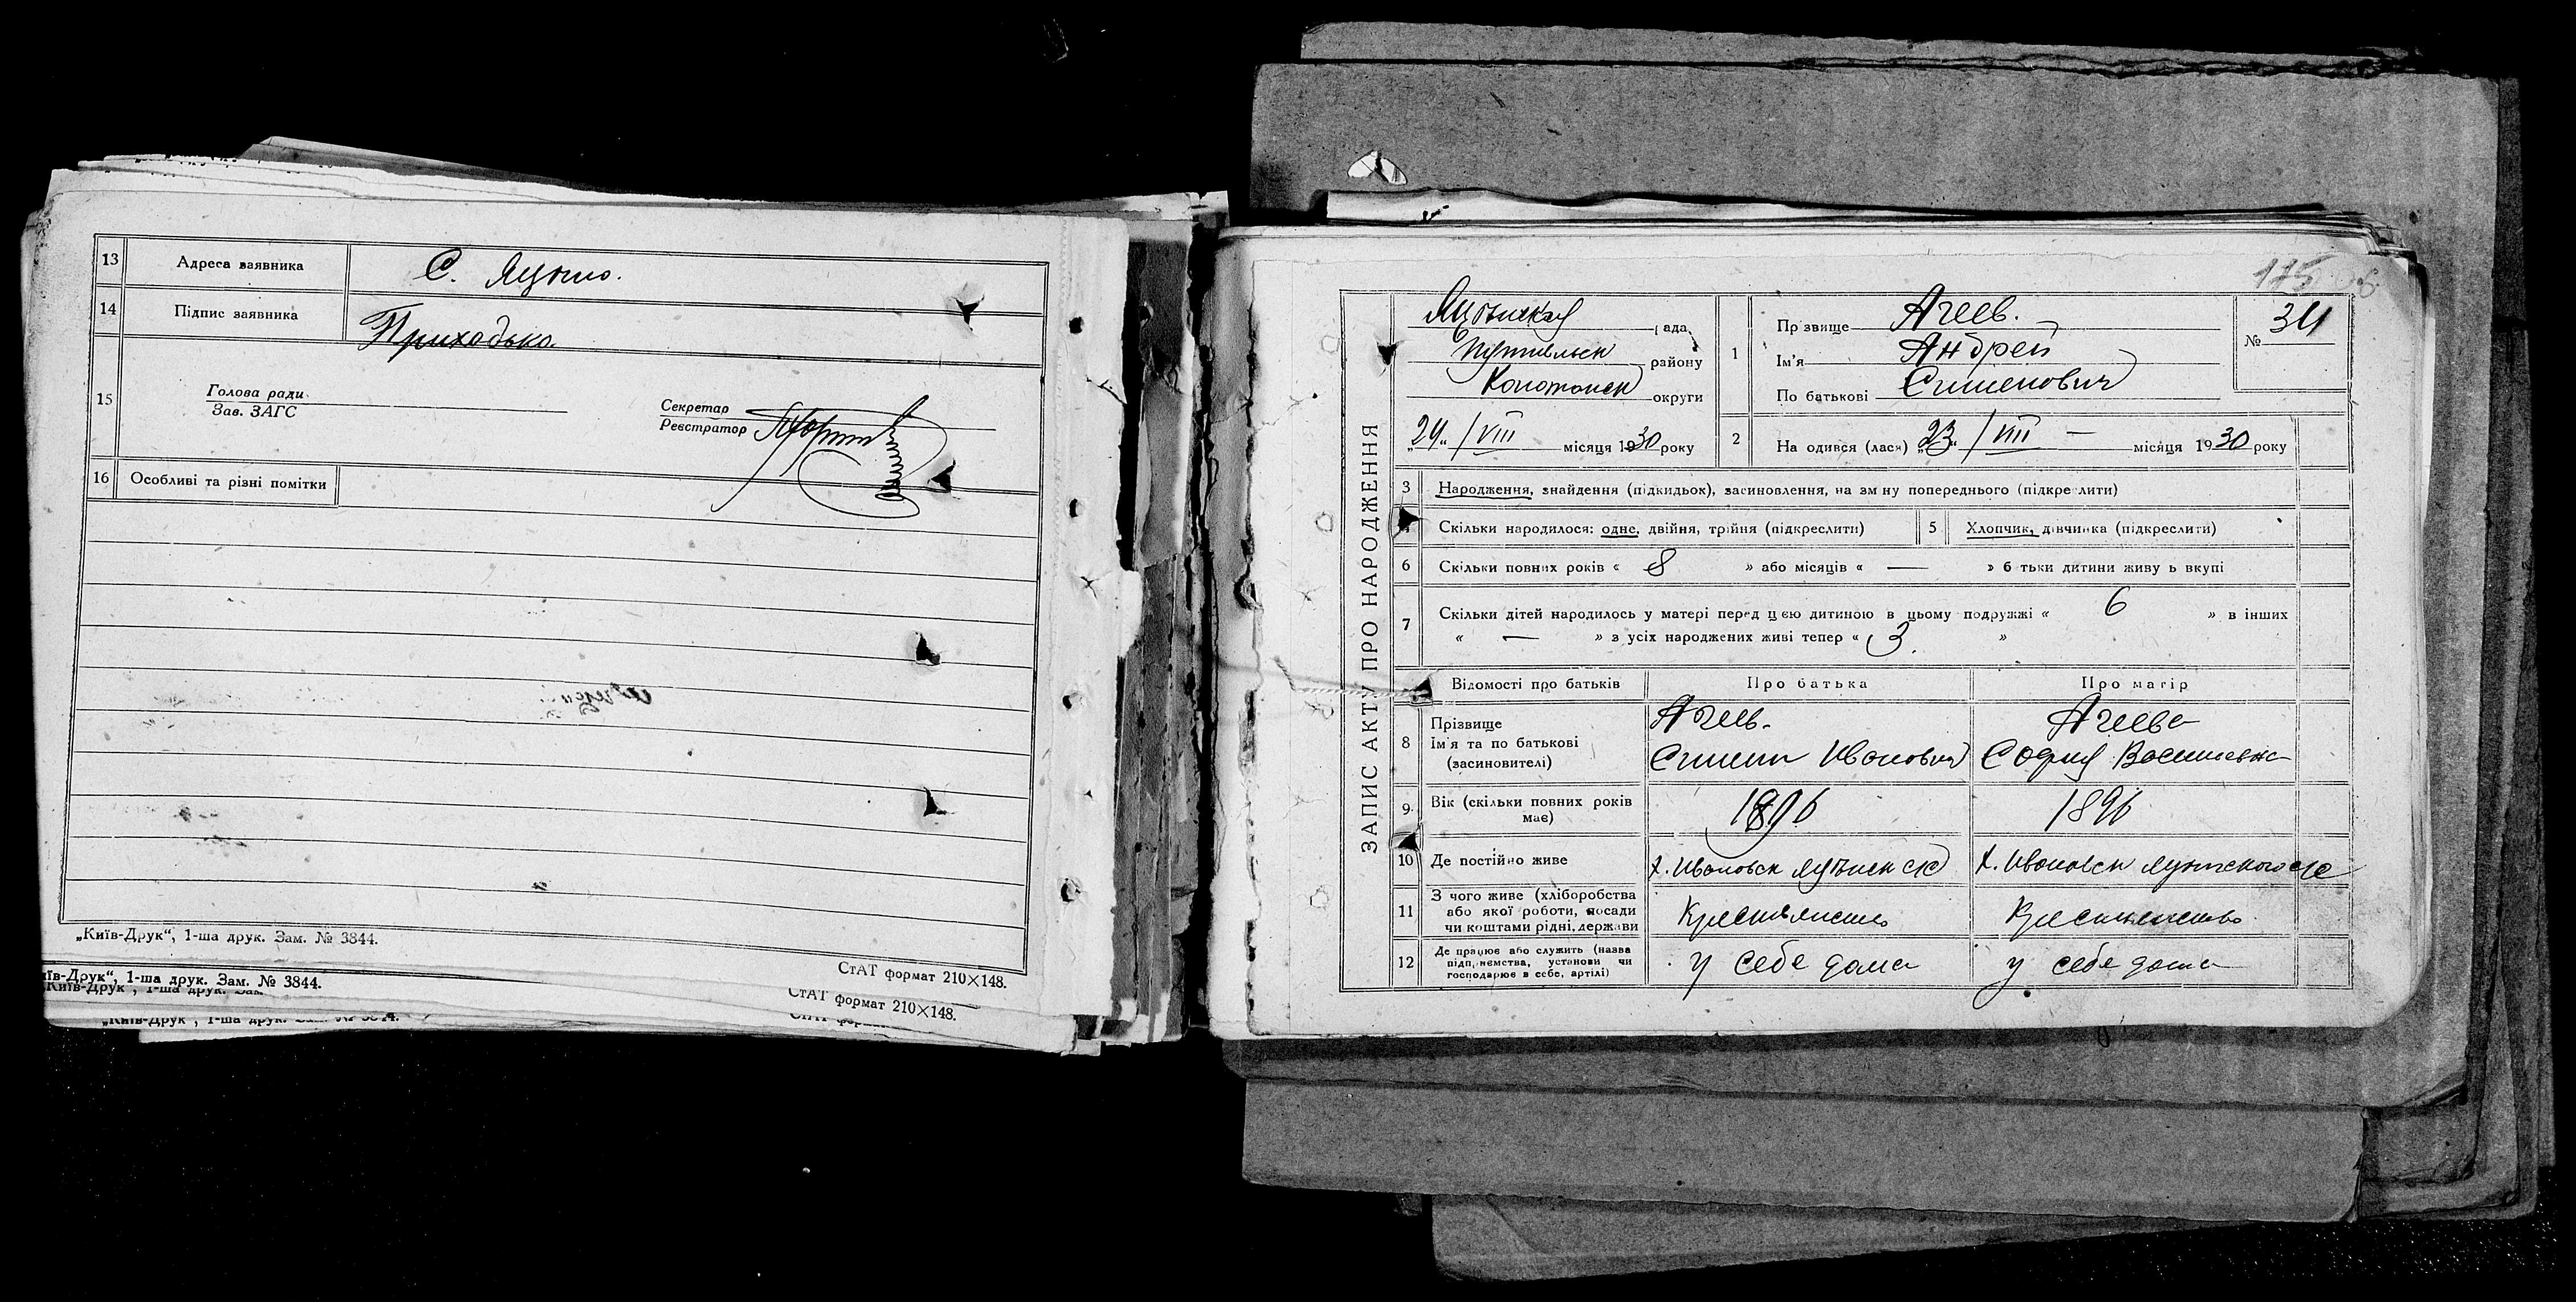 13 Адреса заявника С. Яцыно.
14 Підпис заявника Приходько.
15 Голова ради
Зав. ЗАГС
Секретар
Реєстратор
16 Особливі та різні помітки
„Київ-Друк“, 1-ша друк. Зам. № 3844.
СтАТ формат 210×148.
їв-Друк“, 1-ша друк. Зам. № 3844.
СтАТ формат 210×148.
ЗАПИС АКТУ ПРО НАРОДЖЕННЯ
Яцынская рада
Путивльск району
Конотопск округи
„24“ / VIII місяця 1930 року
1 Прізвище Агеев.
Ім'я Андрей
По батькові Семенович
№ 34
2 Народився (лася) „23“ / VIII — місяця 1930 року
3 Народження, знайдення (підкидьок), засиновлення, на зміну попереднього (підкреслити)
4 Скільки народилося: одне, двійня, трійня (підкреслити)
5 Хлопчик, дівчинка (підкреслити)
6 Скільки повних років « 8 » або місяців « — » батьки дитини живуть вкупі
7 Скільки дітей народилось у матері перед цією дитиною в цьому подружжі « 6 » в інших
« — » з усіх народжених живі тепер « 3. »
Відомості про батьків Про батька Про матір
8 Прізвище Агеев. Агеева
Ім'я та по батькові Семен Иванович София Васильевна
(засновителі)
9 Вік (скільки повних років має) 1896 1896
10 Де постійно живе х. Ивановск х. Ивановск
11 З чого живе (хліборобства
або якої роботи, посади
чи коштами рідні, держави
Крестьянство Крестьянство
12 Де працює або служить (назва
підприємства, установи чи
господарює в себе, артілі)
у себе дома у себе дома